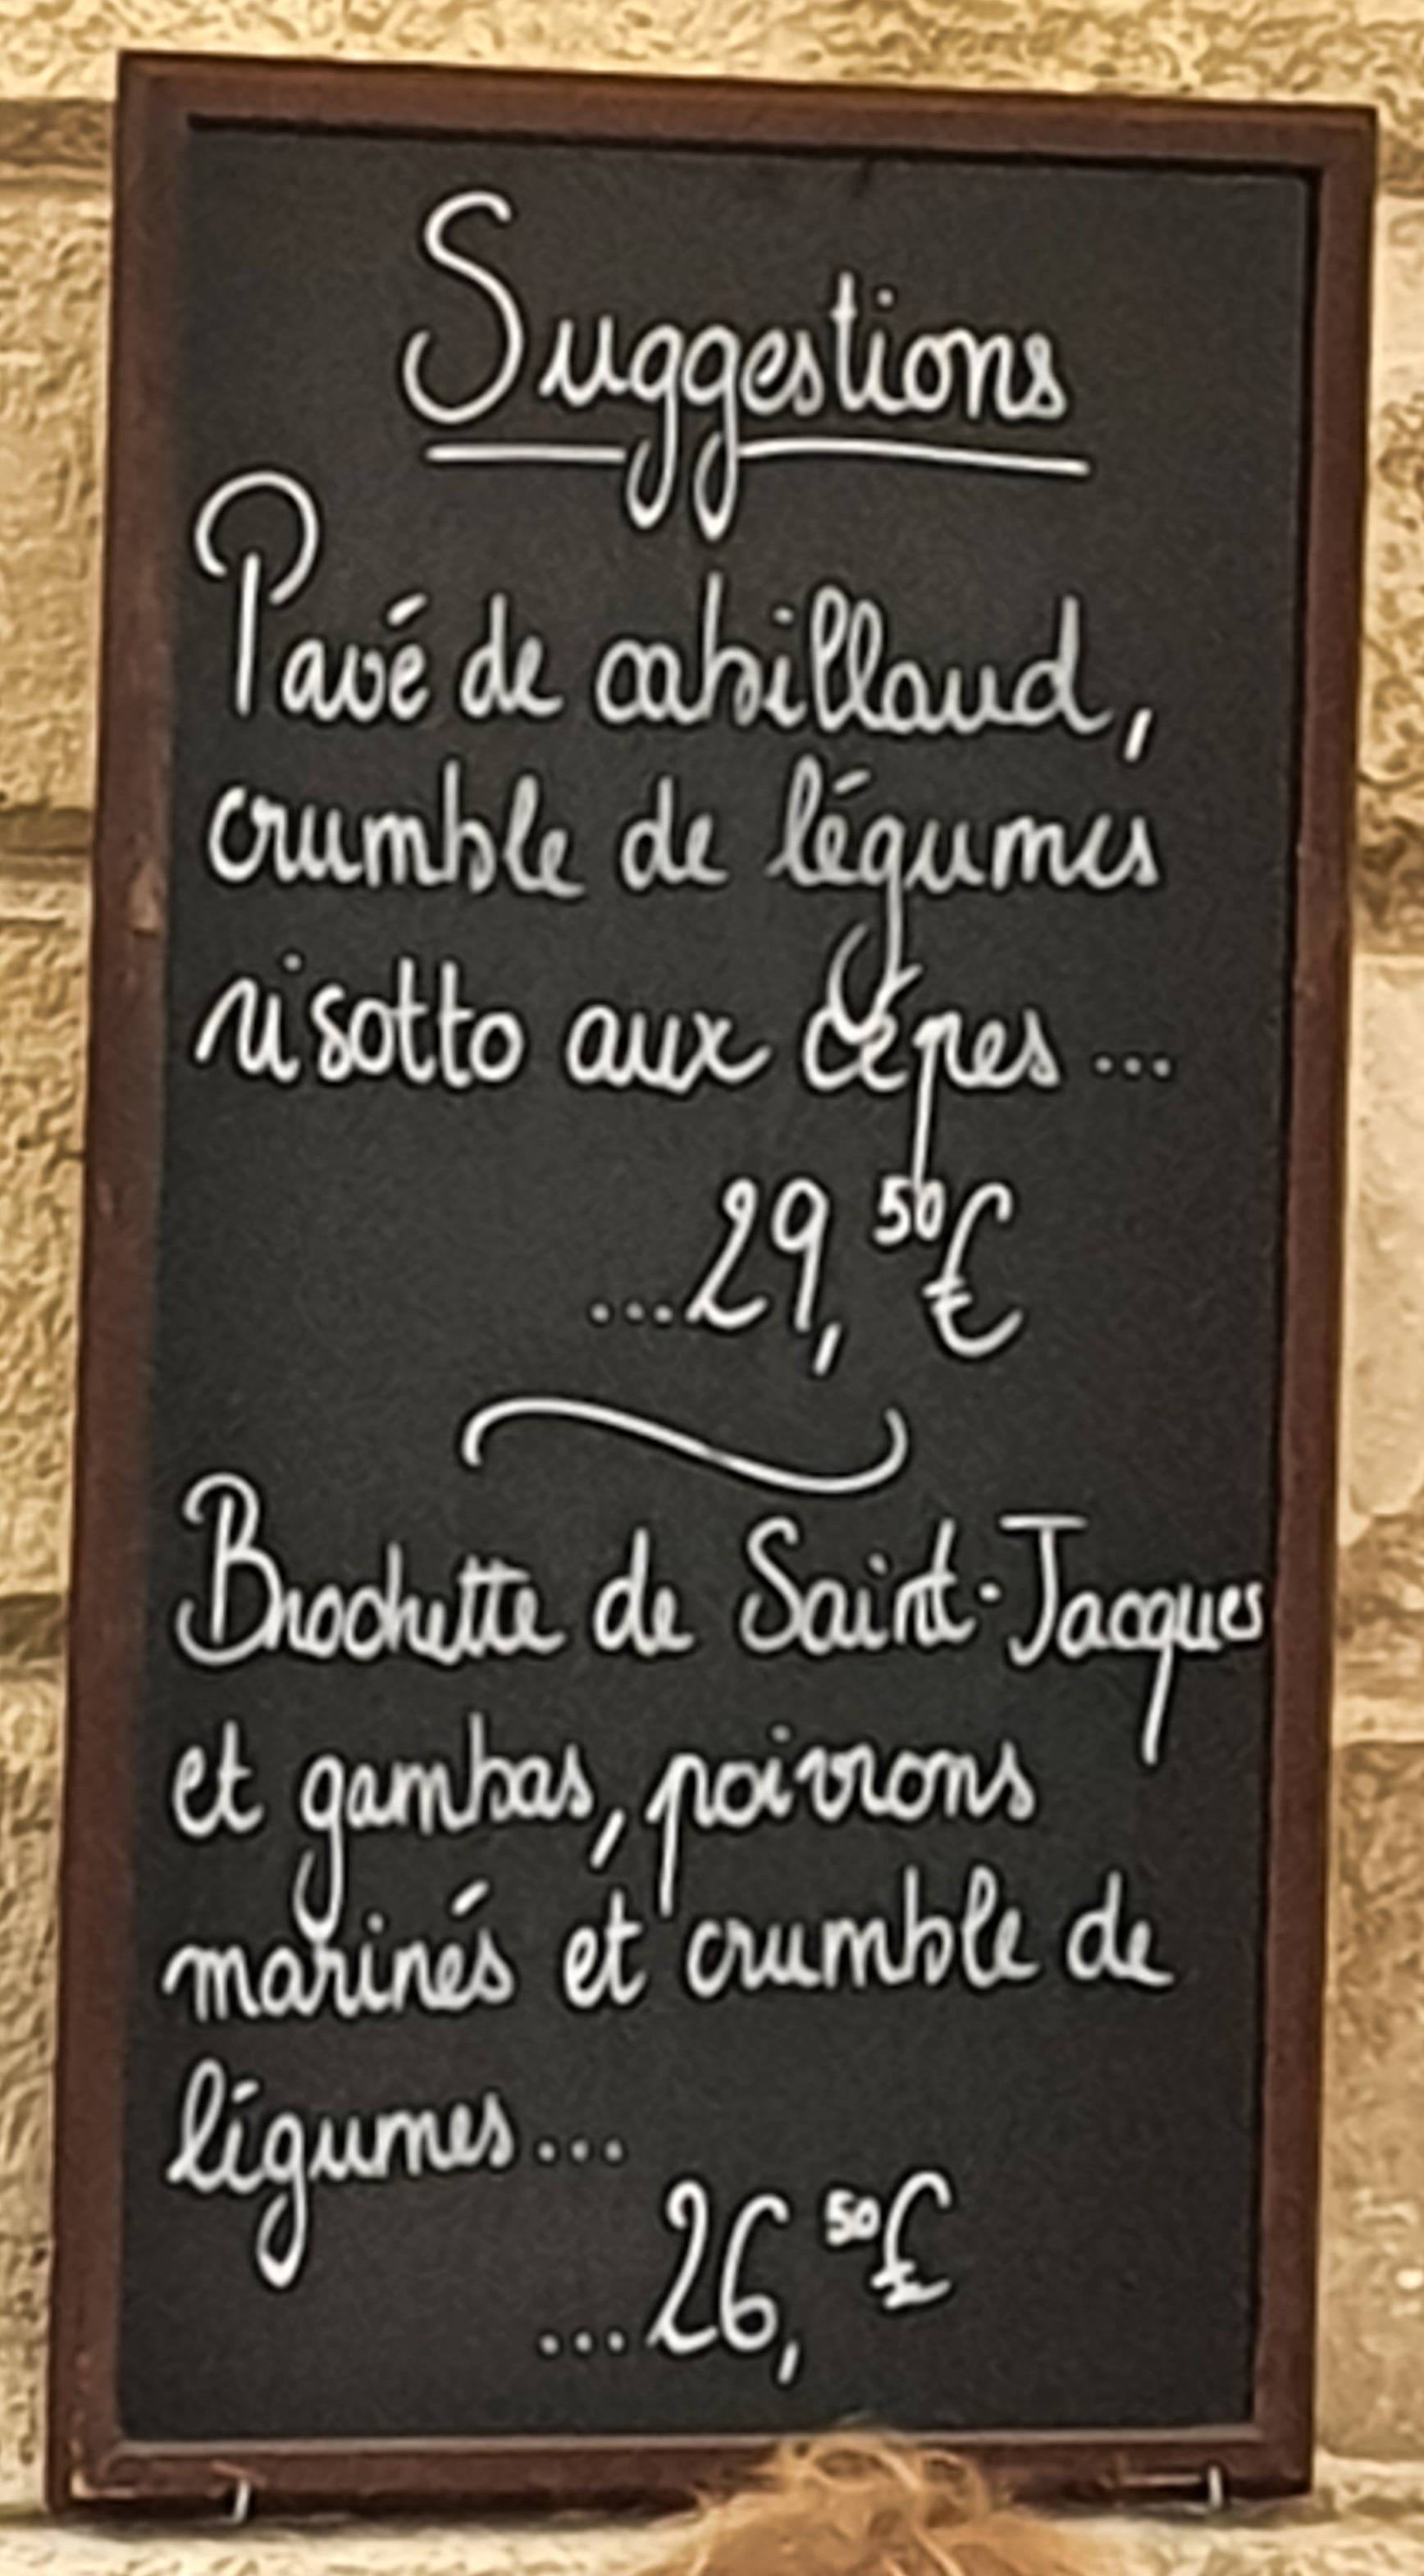 Suggestions
Pavé de cabillaud,
crumble de légumes
risotto aux cèpes...
...29,50€
Brochette de Saint-Jacques
et gambas, poivrons
marinés et crumble de
légumes...
...26,50€